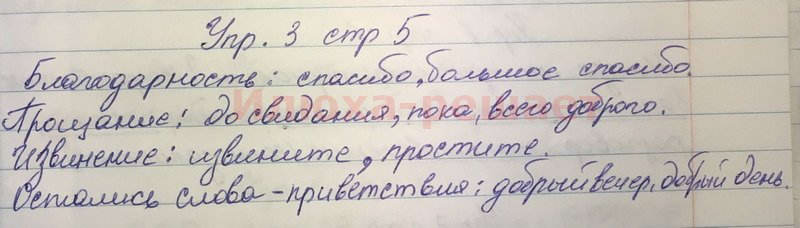 Упр. 3 стр 5
Благодарность: спасибо, большое спасибо.
Прощание: до свидания, пока, всего доброго.
Извинение: извините, простите.
Остались слова-приветствия: добрый вечер, добрый день.